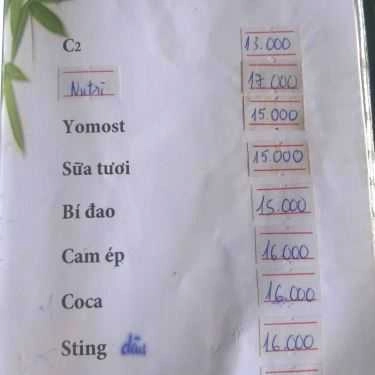 C2 13.000
Nutri 17.000
Yomost 15.000
Sữa tươi 15.000
Bí đao 15.000
Cam ép 16.000
Coca 16.000
Sting dâu 16.000